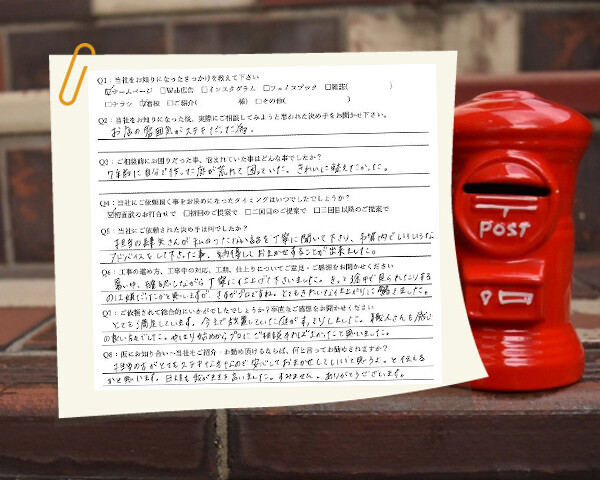 Q1：当社をお知りになったきっかけを教えて下さい
☑ホームページ □Web広告 □インスタグラム □フェイスブック □雑誌( )
□チラシ ☑看板 □ご紹介( 様) □その他( )
Q2：当社をお知りになった後、実際にご相談してみようと思われた決め手をお聞かせ下さい。
お店の雰囲気がステキだった為。
Q3：ご相談前にお困りだった事、悩まれていた事はどんな事でしたか？
7年前に自分で作った庭が荒れて困っていた。きれいに整えたかった。
Q4：当社にご依頼頂く事をお決めになったタイミングはいつでしたでしょうか？
☑初面談のお打合せで □初回のご提案で □二回目のご提案で □三回目以降のご提案で
Q5：当社に依頼された決め手は何でしたか？
担当の さんが私のつたない話を丁寧に聞いて下さり、予算内でいろいろな
アドバイスをして下さった事。納得しておまかせすることが出来ました。
Q6：工事の進め方、工事中の対応、工期、仕上りについてご意見・ご感想をお聞かせください
暑い中、 丁寧に仕上げて下さいました。きっと途中で見られたりする
のは嫌だったかと思いますが、さすがプロですね。とてもきれいな仕上がりに驚きました。
Q7：ご依頼されて総合的にいかがでしたでしょうか？率直なご感想をお聞かせください
とても満足しています。今まで放置していた庭がすっきりしました。職人さんも感じ
の良い方でした。やはり始めからプロにご相談すればよかったと思いました。
Q8：仮にお知り合いへ当社をご紹介・お勧め頂けるならば、何と言ってお勧めされますか？
担当の方がとてもステキな方なので安心しておまかせしていいと思うよ。と伝える
かと思います。 ました。すみません。ありがとうございます。
POST